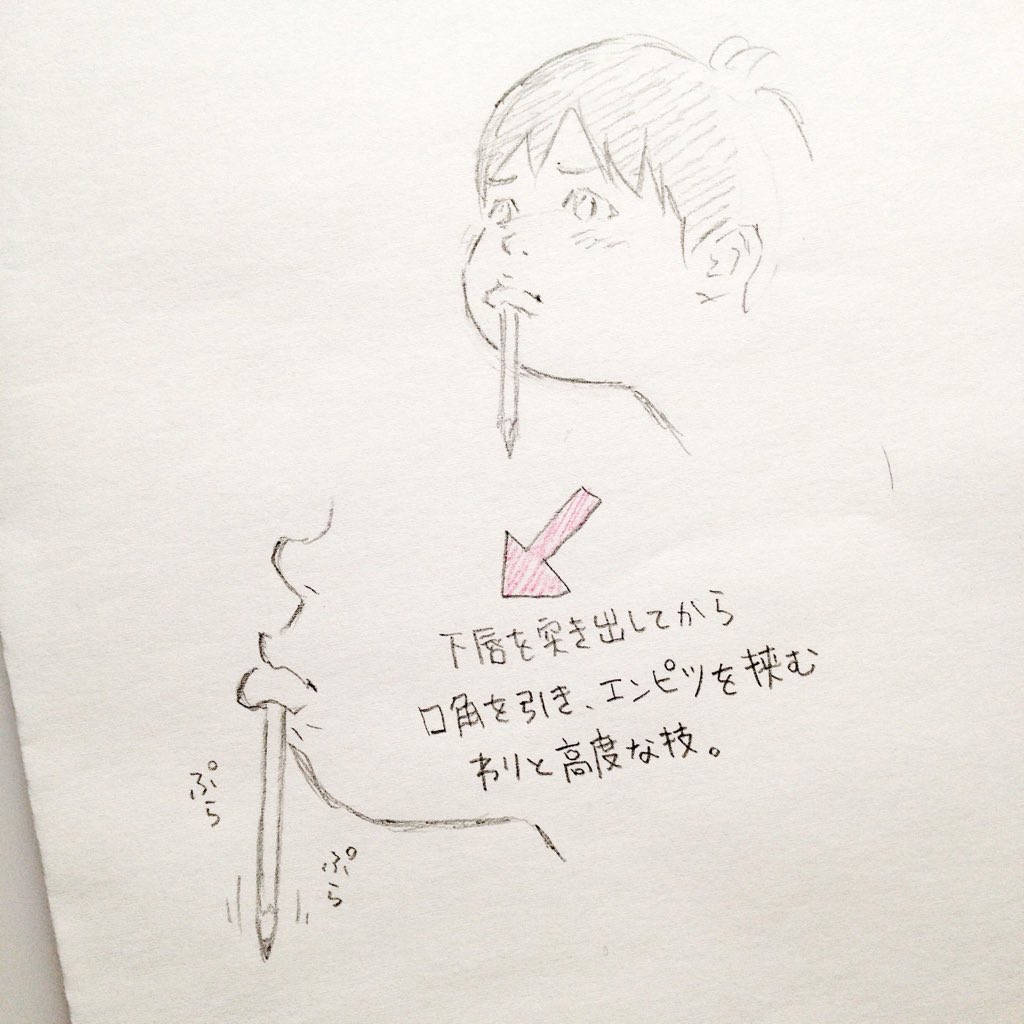 下唇を突き出してから
口角を引き、エンピツを挟む
わりと高度な技。
ぷら
ぷら